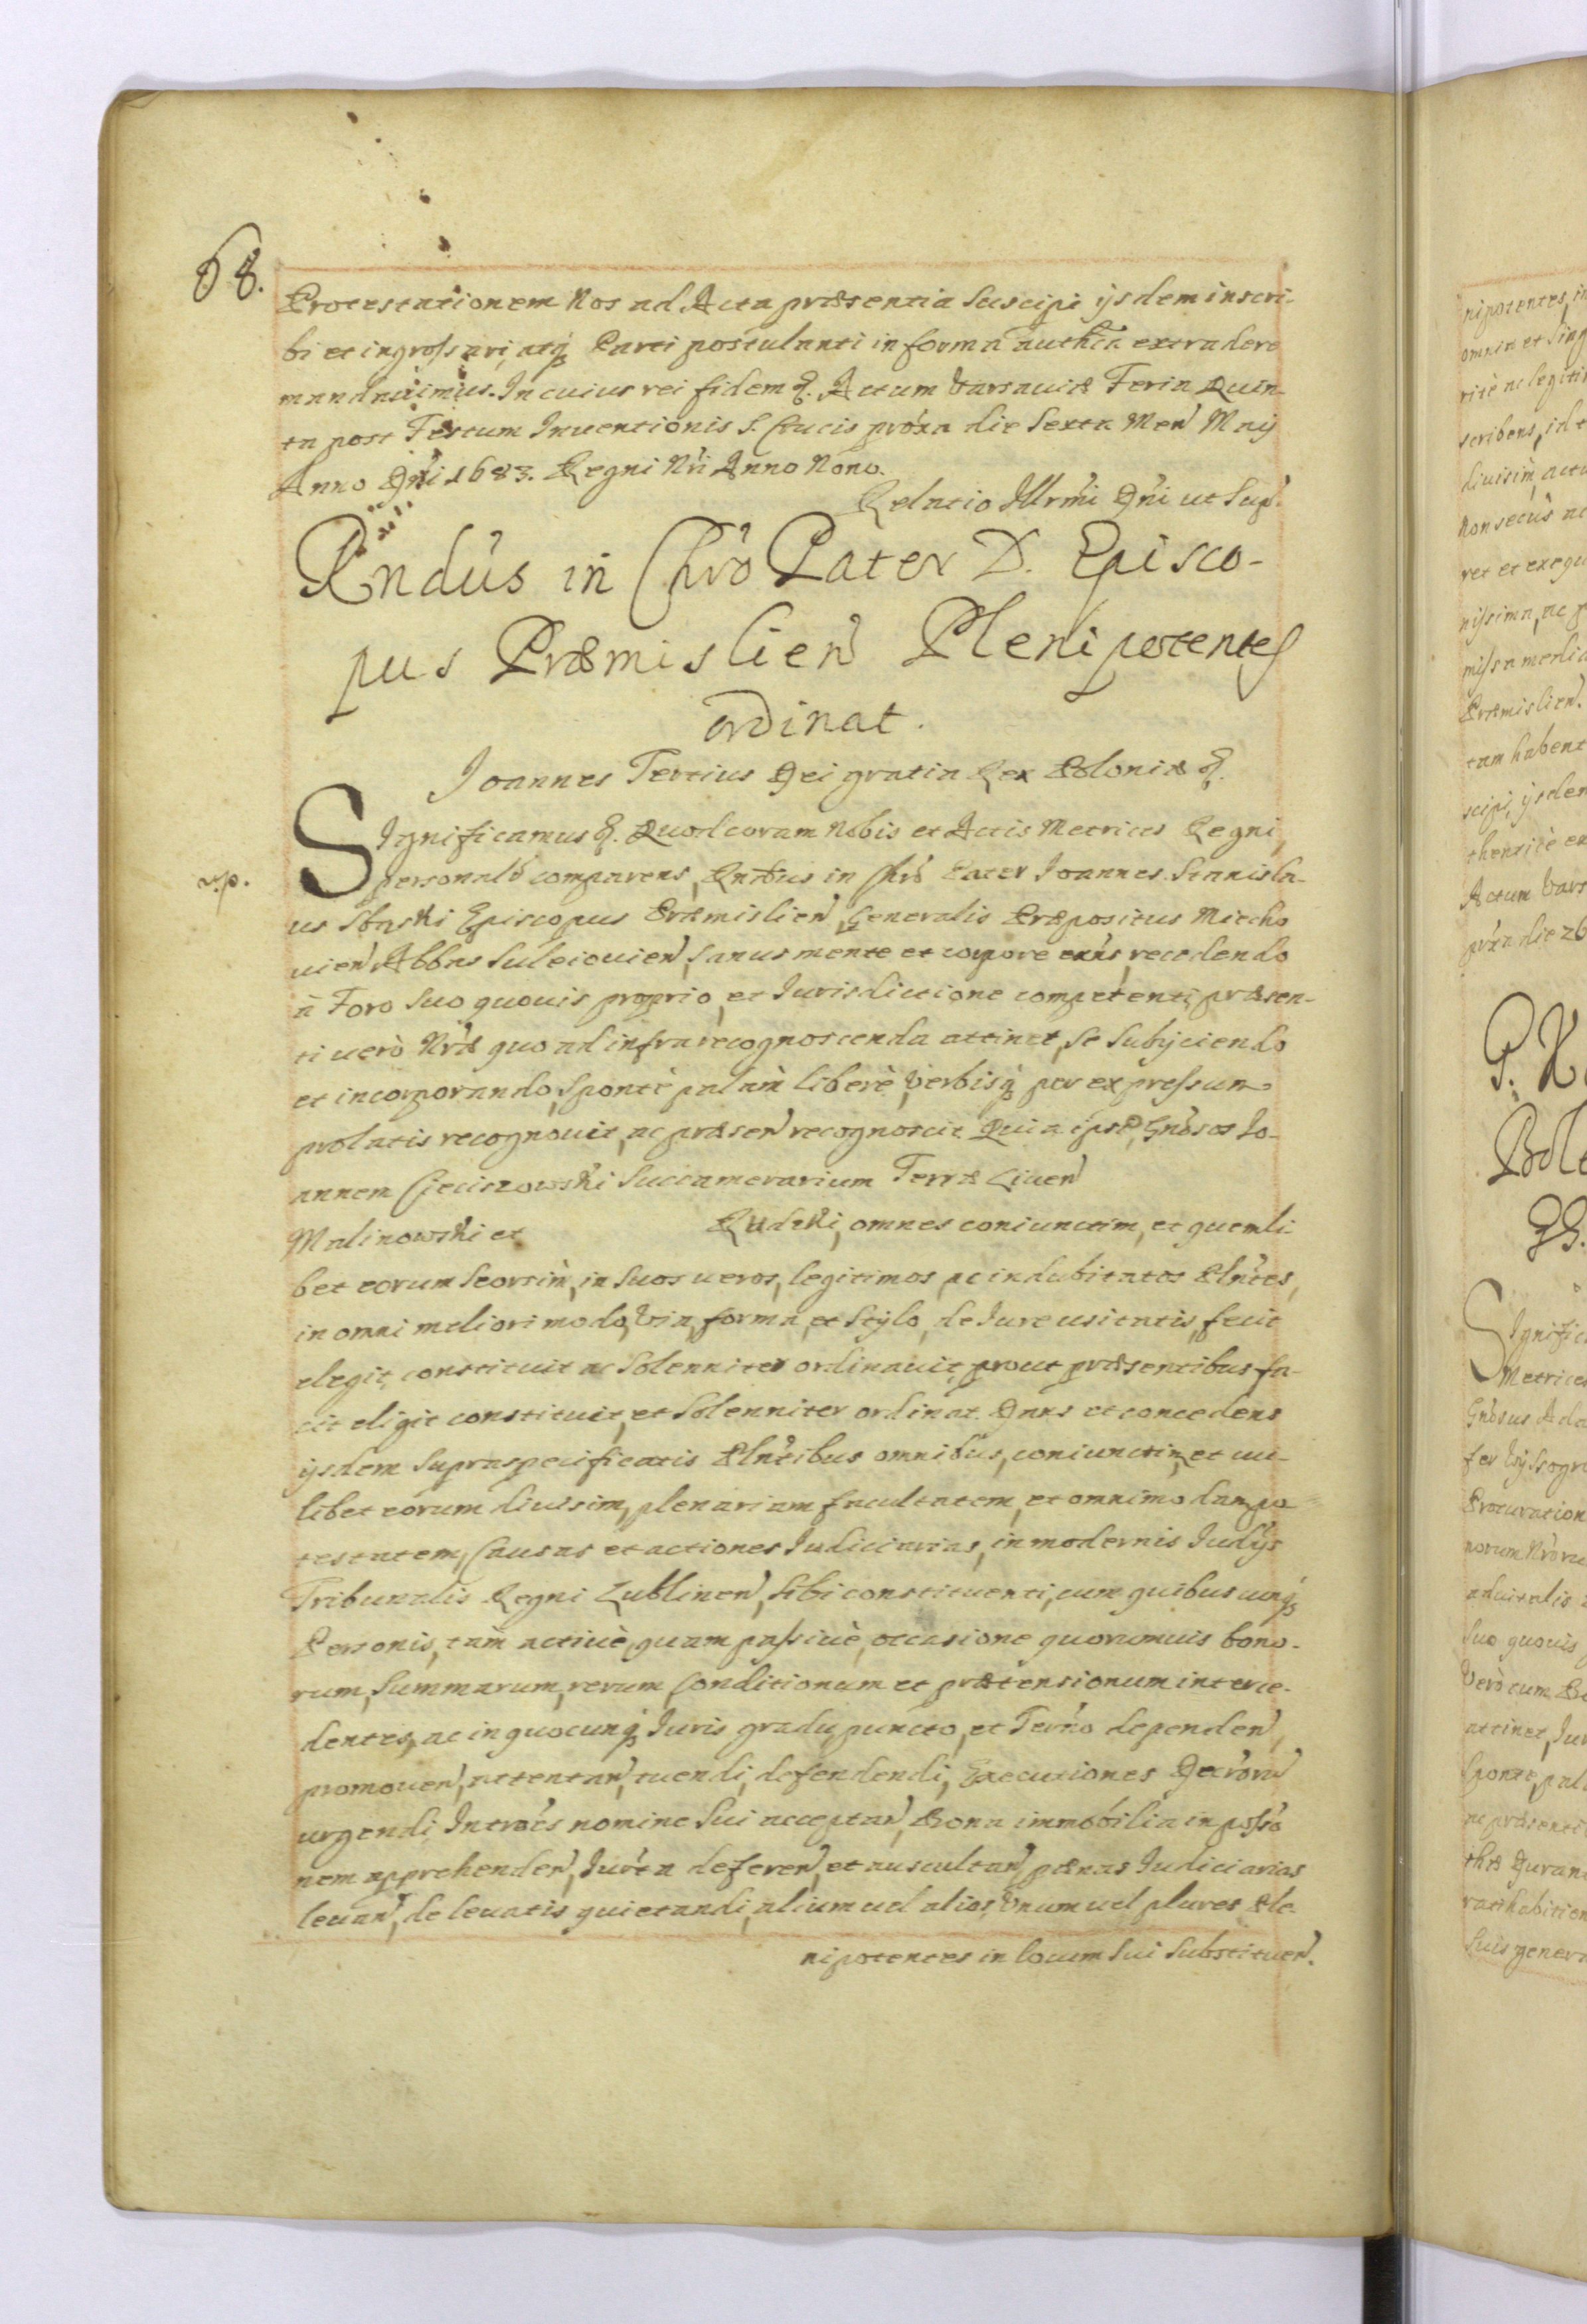 68.
Protestationem Nos ad Acta præsentia suscipi ijsdem inscri-
bi et ingrossari, atq₃ Parti postulanti in forma authca extradere
mandauimus. In cuius rei fidem &. Actum Varsauiæ Feria Quin-
ta post Festum Inuentionis S. Crucis prox̃a die sexta Men̄ Maij
Anno Dñi 1683. Regni Nri Anno Nono.
Relatio Illrmi Dñi ut sup̃.
Rndus in Chro Pater D. Episco-
pus Præmislien̄ Plenipotentes
ordinat.
Joannes Tertius Dei gratia Rex Poloniæ &.
Significamus &. Quod coram Nobis et Actis Metrices Regni,
r.p. personalr̃ comparens, Rndus in Chrõ Pater Joannes Stanisla-
us Sbaski Episcopus Præmislien̄, Generalis Præpositus Miecho
uien̄ Abbas Suleiouien̄, sanus mente et corpore exñs, recedendo
à Foro suo quouis proprio, et Jurisdictione competenti, præsen-
ti uerò Nræ quo ad infra recognoscenda attinet, se subijciendo
et incorporando, sponte palam liberè, Verbisq₃ per expressum
prolatis recognouit, ac præsen̄ recognoscit. Quia ipse, Gnosos Jo-
annem Cieciszowski Succamerarium Terræ Liuen̄
Malinowski et Rudzki, omnes coniunctim, et quemli-
bet eorum seorsim, in suos ueros, legitimos ac indubitatos Plntes,
in omni meliori modo, Via, forma, et Stylo, de Jure usitatis, fecit
elegit, constituit ac solenniter ordinauit, prout præsentibus fa-
cit eligit constituit, et solenniter ordinat. Dans et concedens
ijsdem supraspecificatis Plntibus omnibus, coniunctim, et cui-
libet eorum diuisim, plenariam facultatem, et omnimodam po
testatem, Causas et actiones Judiciarias, in modernis Judijs
Tribunalis Regni Lublinen̄, sibi constituenti, cum quibuscunq₃
Personis, tam actiuè, quam passiuè, occasione quorumuis bono-
rum, summarum, rerum, Conditionum et prætensionum interce-
dentes, ac in quocunq₃ Juris gradu, puncto, et Termo dependen̄,
promouen̄, attentan̄, tuendi, defendendi, Executiones Decrorum
urgendi, Introes nomine sui acceptan̄, Bona immobilia in posso
nem apprehenden̄, Jurta deferen̄, et auscultan̄, pænas Judiciarias
leuan̄, de leuatis quietandi, alium uel alios, Unum uel plures Ple-
nipotentes in locum sui substituen̄.
nipotentes, in
omnia et sing
ritè ac legiti
scribens, id t
diuisim, actu
Non secus ac
ret et exequ
missa media
Præmislien.
tam habent
scipi, ijsdem
thenticè ex
Actum Vars
prox̃a die 26
G. K
Signific
Metrices
Gnosus Ada
Procuration
norum Nroru
aduitalis
suo quouis
Verò cum
attinet, Jur
sponte, pal
ac præsenti
thæ Duran
rathabition
suis genera